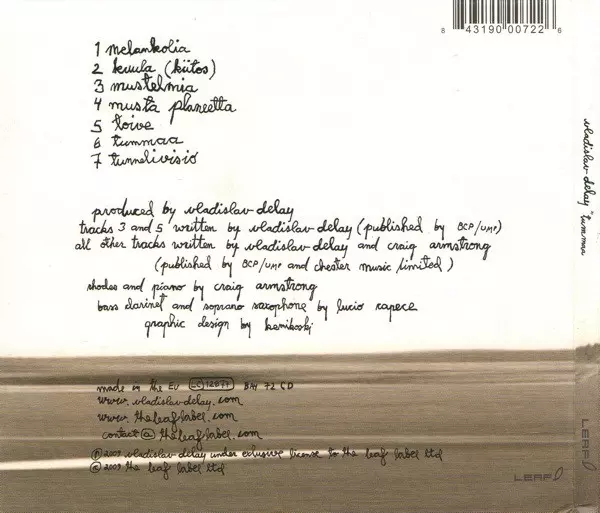 8 43190 00722 6
1 melankolia
2 kuula (kiitos)
3 mustelmia
4 musta planeetta
5 toive
6 tummaa
7 tunnelivisio
produced by vladislav delay
tracks 3 and 5 written by vladislav delay (published by BCP/UMP)
all other tracks written by vladislav delay and craig armstrong
(published by BCP/UMP and chester music limited)
rhodes and piano by craig armstrong
bass clarinet and soprano saxophone by lucio capece
graphic design by kemikoski
made in the EU LC 12877 BAY 72 CD
www.vladislavdelay.com
www.theleaflabel.com
contact@theleaflabel.com
℗ 2009 vladislav delay under exclusive license to the leaf label ltd
© 2009 the leaf label ltd
LEAF
vladislav delay "tummaa
LEAF